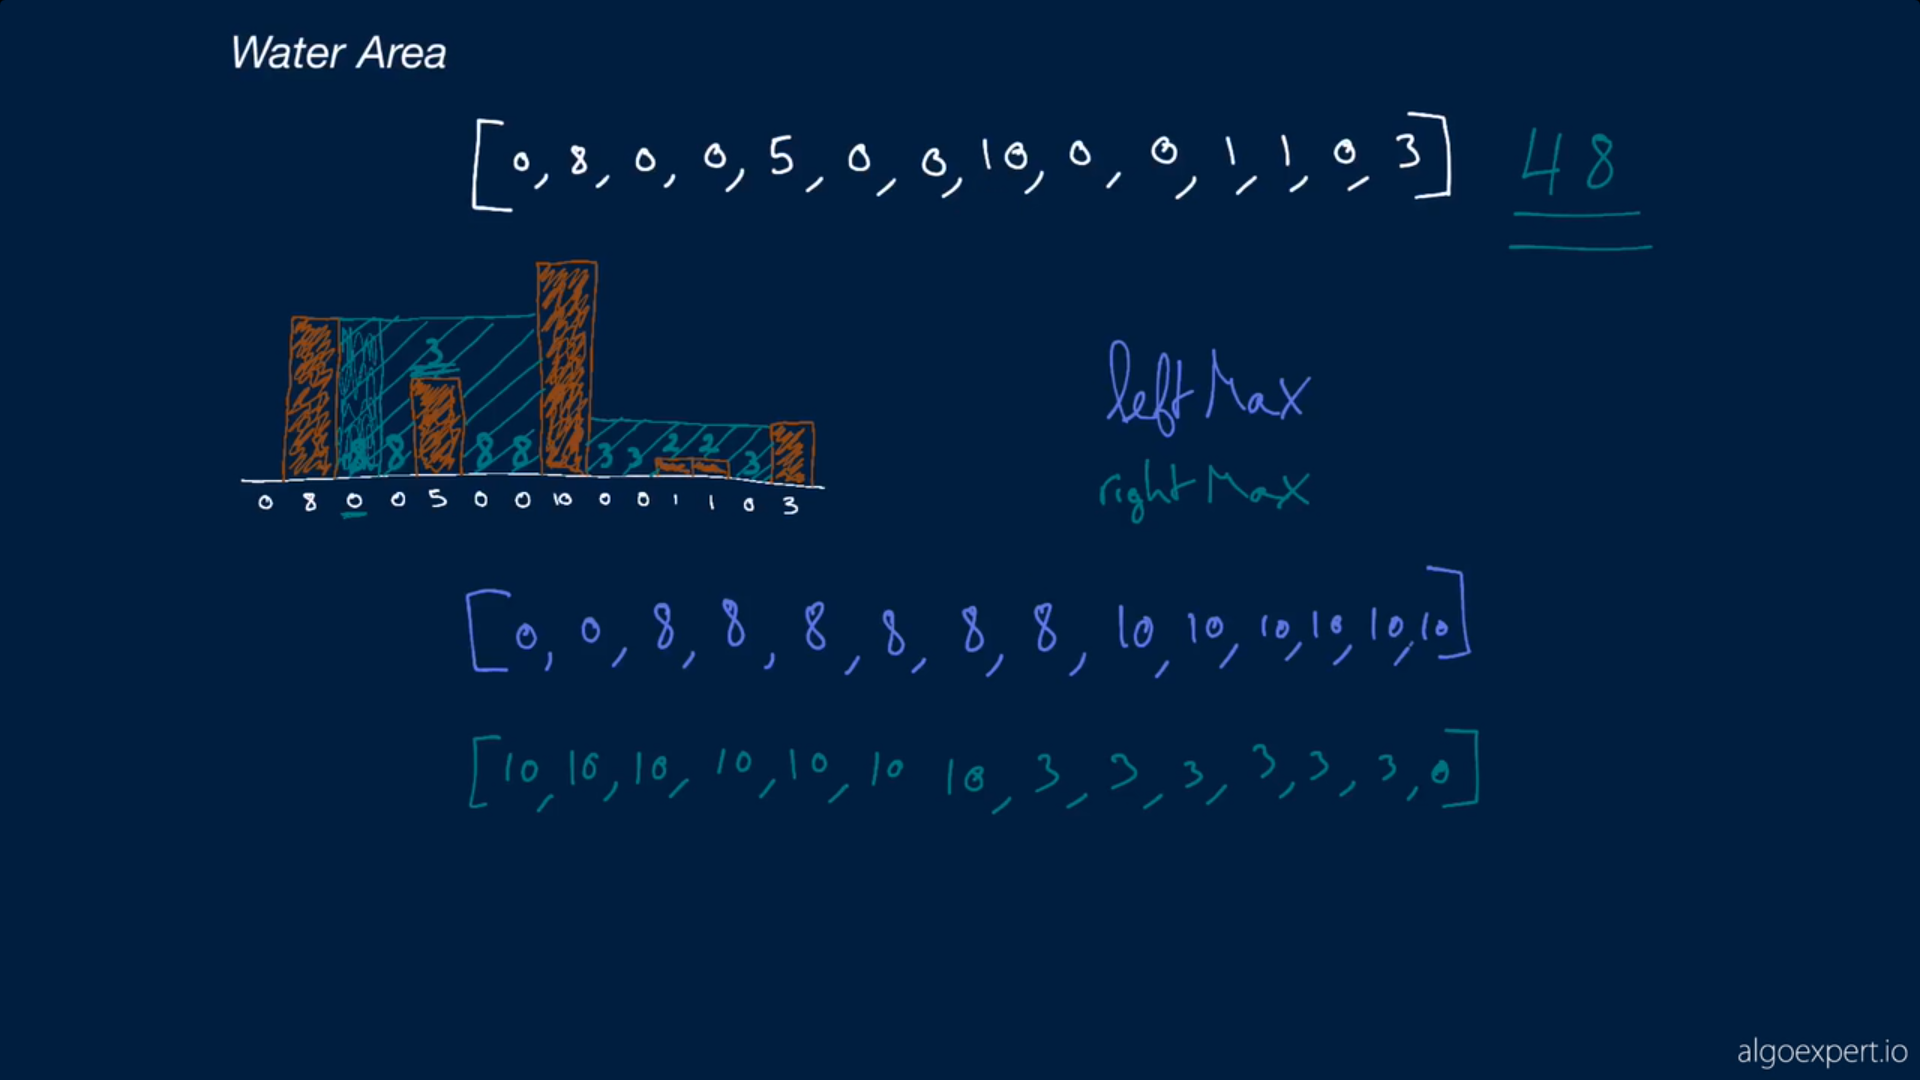 Water Area
[0, 8, 0, 0, 5, 0, 0, 10, 0, 0, 1, 1, 0, 3] 48
3
8 8 8 8 3 3 2 2 3
0 8 0 0 5 0 0 10 0 0 1 1 0 3
leftMax
rightMax
[0, 0, 8, 8, 8, 8, 8, 8, 10, 10, 10, 10, 10, 10]
[10, 10, 10, 10, 10, 10 10, 3, 3, 3, 3, 3, 3, 0]
algoexpert.io